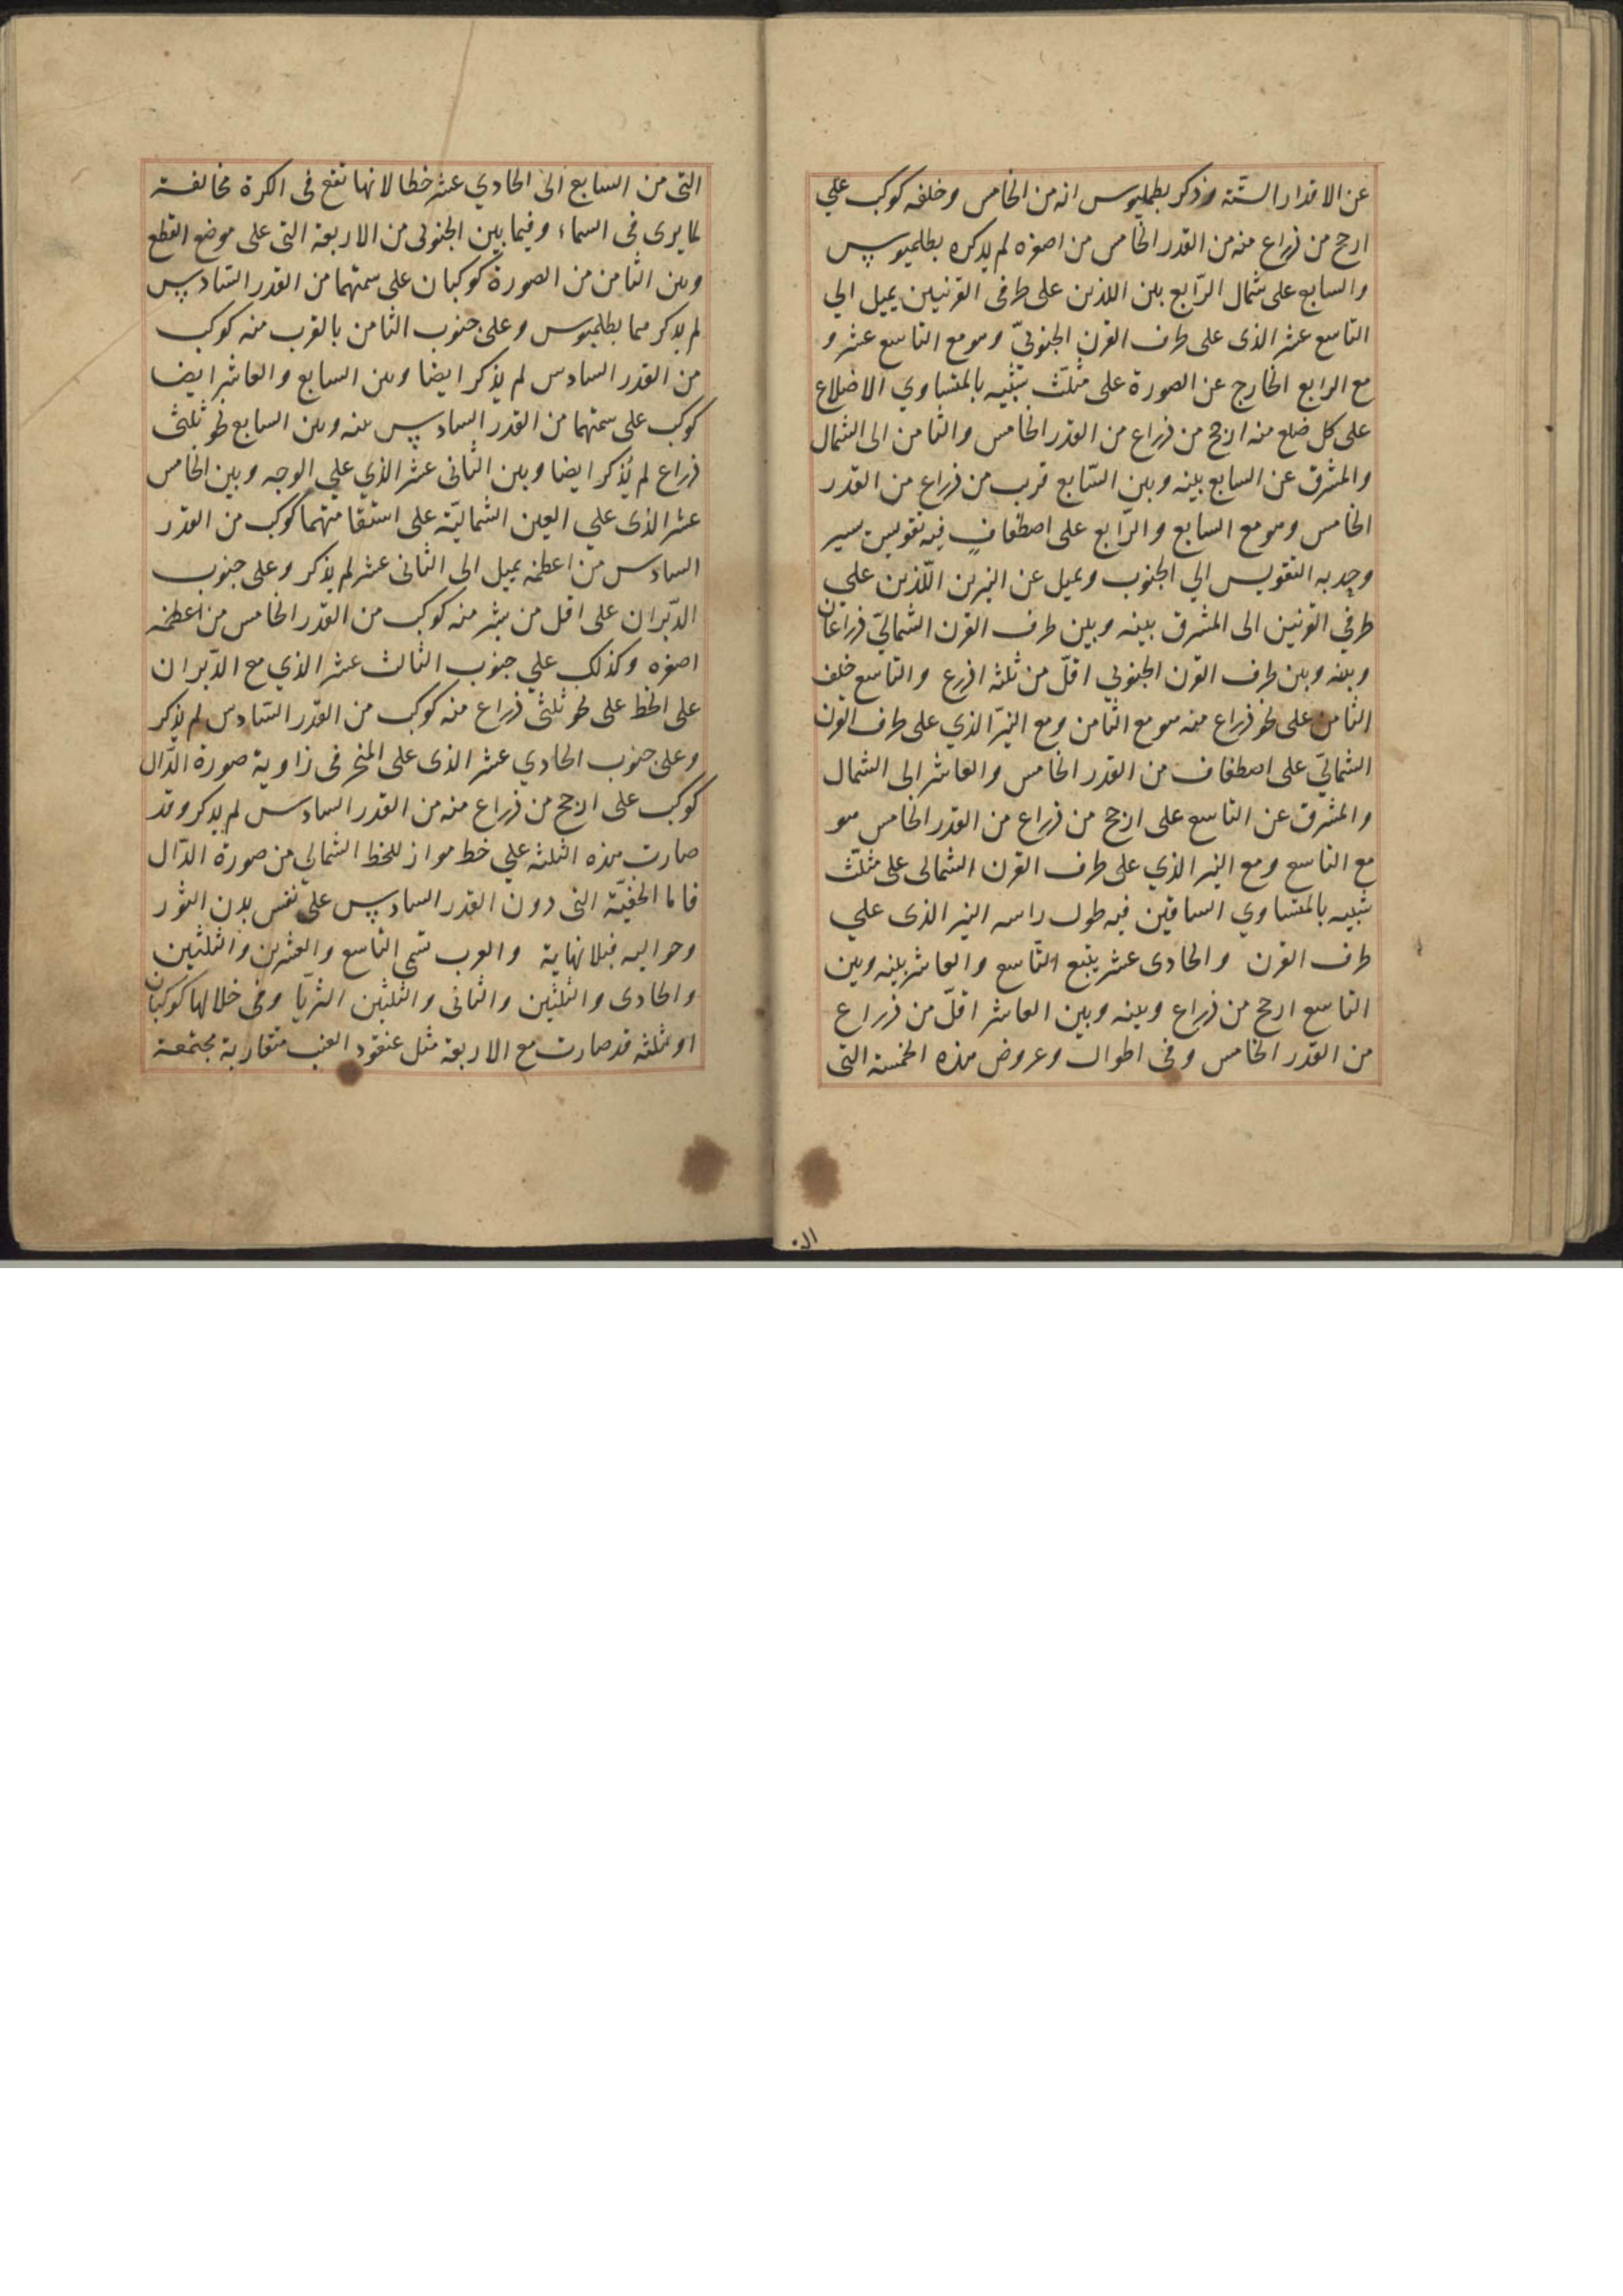 عن الاقدار الستّة وذكر بطلميوس انه من الخامس وخلفه كوكب علي
ارجح من ذراع منه من القدر الخامس من اصغره لم يذكره بطلميوس
والسابع على شمال الرّابع بين اللذين على طرفى القرنين يميل الي
التاسع عشر الذى على طرف القرن الجنوبيّ وهو مع التاسع عشر و
مع الرابع الخارج عن الصورة على مثلّث شبيه بالمتساوي الاضلاع
على كل ضلع منه ارجح من ذراع من القدر الخامس والثامن الى الشمال
والمشرق عن السابع بينه وبين السّابع قرب من ذراع من القدر
الخامس وهو مع السابع والرّابع على اصطفافٍ فيه تقويس يسير
وحدبه التقويس الي الجنوب ويميل عن النيرين اللّذين على
طرفي القرنين الى المشرق بينه وبين طرف القرن الشماليّ ذراعان
وبينه وبين طرف القرن الجنوبي اقلّ من ثلثه اذرع والتاسع خلف
الثامن على نحو ذراع منه هو مع الثامن ومع النيّر الذي على طرف القرن
الشماليّ على اصطفاف من القدر الخامس والعاشر الى الشمال
والمشرق عن التاسع على ارجح من ذراع من القدر الخامس هو
مع التاسع ومع النير الذي على طرف القرن الشمالى على مثلّث
شبيه بالمتساوي الساقين فيه طول راسه النير الذى علي
طرف القرن والحادى عشر يتبع التّاسع والعاشر بينه وبين
التاسع ارجح من ذراع وبينه وبين العاشر اقلّ من ذراع
من القدر الخامس وفى اطوال وعروض هذه الخمسة التى
التى من السابع الى الحادي عشر خطا لانها تقع فى الكرة مخالفة
لما يرى فى السماء وفيما بين الجنوبى من الاربعة التى على موضع القطع
وبين الثامن من الصورة كوكبان على سمتهما من القدر السّادس
لم يذكرهما بطلميوس وعلى جنوب الثامن بالقرب منه كوكب
من القدر السادس لم يذكر ايضا وبين السابع والعاشر ايضا
كوكب على سمتهما من القدر السادس بينه وبين السابع نحو ثلثى
ذراع لم يُذكر ايضا وبين الثانى عشر الذي علي الوجه وبين الخامس
عشر الذى علي العين الشماليّة على استقامتهما كوكب من القدر
السادس من اعظمه يميل الى الثانى عشر لم يذكر وعلى جنوب
الدّبران على اقل من شبر منه كوكب من القدر الخامس من اعظمه
اصغره وكذلك علي جنوب الثالث عشر الذي مع الدّبران
على الخط على نحو ثلثى ذراع منه كوكب من القدر السّادس لم يذكر
وعلى جنوب الحادي عشر الذى على المنخر فى زاوية صورة الدّال
كوكب على ارجح من ذراع منه من القدر السادس لم يذكر وقد
صارت هذه الثلثه علي خط مواز للخط الشمالي من صورة الدّال
فاما الخفيّة التى دون القدر السادس على نفس بدن الثور
وحواليه فبلا نهاية والعرب تسمى التاسع والعشرين والثلثين
والحادى والثلثين والثانى والثلثين الثريّا وفى خلالها كوكبان
او ثلثه قد صارت مع الاربعة مثل عنقود العنب متقاربة مجتمعة